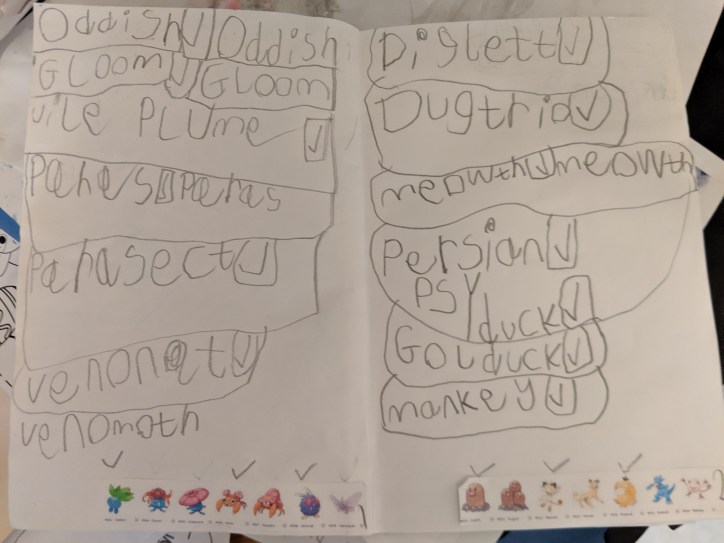 Oddish Oddish
GLoom GLoom
vile PLUme
Paras Paras
Parasect
venonat
venomoth
Diglett
Dugtrio
meowth meowth
Persian
PSY
duck
Golduck
mankey